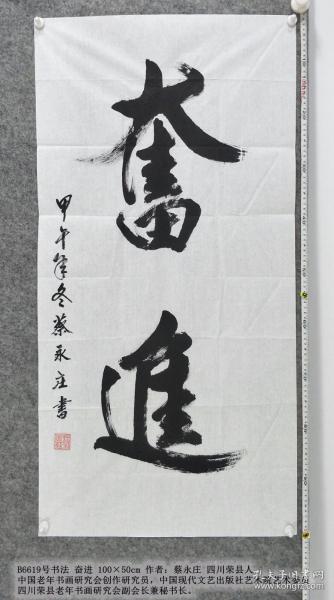 奮
進
甲午年冬蔡永庄書
B6619号书法 奋进 100×50cm 作者：蔡永庄 四川荣县人
中国老年书画研究会创作研究员，中国现代文艺出版社艺术
四川荣县老年书画研究会副会长兼秘书长。